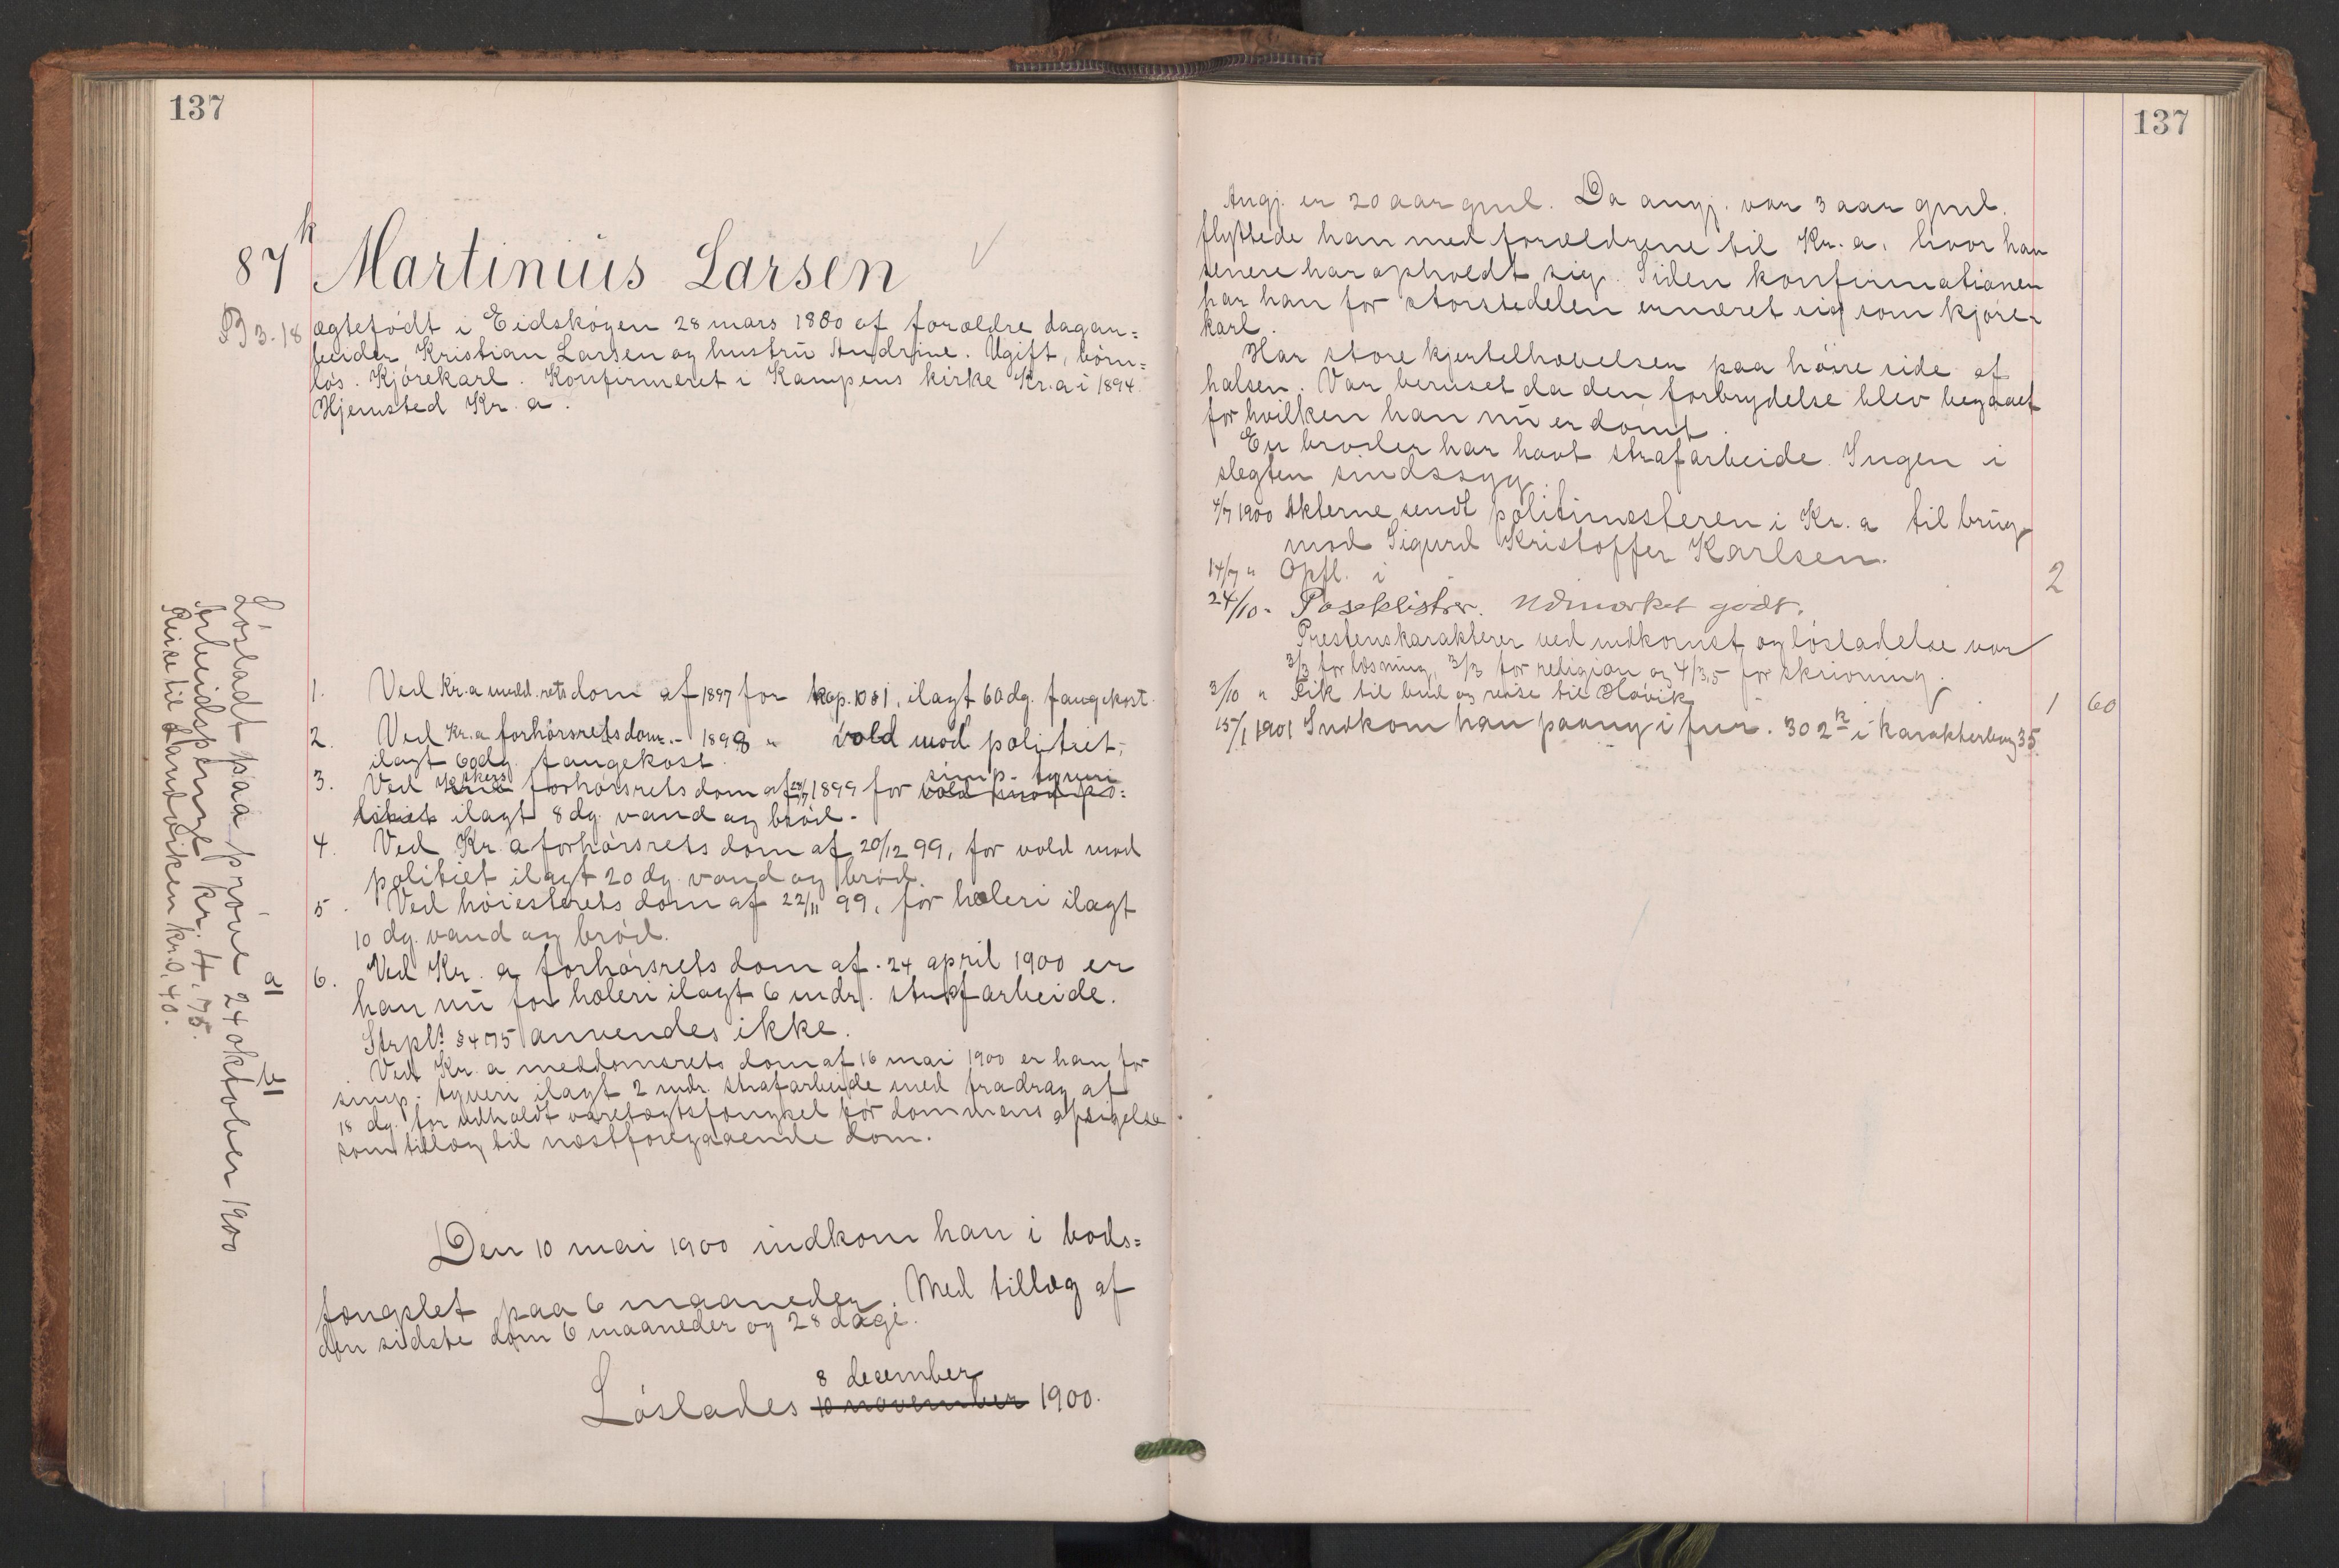 137
87k Martinius Larsen
B 3.18
ægtefödt i Eidskogen 28 mars 1880 af forældre dagar=
beider Kristian Larsen og hustru Andrine. Ugift, börn=
lös. Kjörekarl. Konfirmeret i Kampens kirke Kr.a i 1894
Hjemsted Kr. a.
1. Ved Kr.a medd.retsdom af 1897 for kap. 10 § 1, ilagt 60 dg. fangekost.
2. Ved Kr.a forhörsretsdom - 1898 " vold mod politiet,
ilagt 60 dg. fangekost.
3. Ved Akers forhörsretsdom af 1899 for simp. tyveri vold mod po=
litiet ilagt 8 dg. vand og bröd.
4. Ved Kr. a forhörsrets dom af 20/12 99, for vold mod
politiet ilagt 20 dg. vand og bröd.
5. Ved höiesterets dom af 22/11 99, for hæleri ilagt
10 dg. vand og bröd.
6. Ved Kr. a forhörsrets dom af 24 april 1900 er
han nu for hæleri ilagt 6 mdr. strafarbeide.
Strpl. § 475 anvendes ikke.
Ved Kr. a meddomsrets dom af 16 mai 1900 er han for
simp. tyveri ilagt 2 mdr. strafarbeide med fradrag af
18 dg. for udholdt varetægtsfængsel för dommens afsigelse
som tillæg til næstforegaaende dom.
Den 10 mai 1900 indkom han i bods=
fængslet paa 6 maaneder. Med tillæg af
den sidste dom 6 maaneder og 28 dage.
8 december
Löslades 10 november 1900.
Lösladt paa pröve 24 oktober 1900
Arbeidspenge kr. 4,75.
Reise til Sandviken kr. 0,40.
137
Angj. er 20 aar gml. Da angj. var 3 aar gml.
flyttede han med forældrene til Kr. a. hvor han
senere har opholdt sig. Siden konfirmationen
har han for störstedelen ernæret sig som kjöre-
karl.
Har store kjertelhovelser paa höire side af
halsen. Var beruset da den forbrydelse blev begaaet
for hvilken han nu er dömt.
En broder har havt strafarbeide. Ingen i
slegten sindssyg.
4/7 1900 Akterne sendt politimesteren i Kr. a til brug
mod Sigurd Kristoffer Karlsen.
14/7 " Opfl. i
24/10 " Poseklistrer. Udmærket godt. 2
Prestens karakterer ved indkomst og lösladelse var
3/3 for læsning, 3/3 for religion og 4/3,5 for skrivning.
3/10 " Fik til bud og reise til Hövik 1 60
15/1 1901 Indkom han paany i fnr. 302 k i karakterbog 35